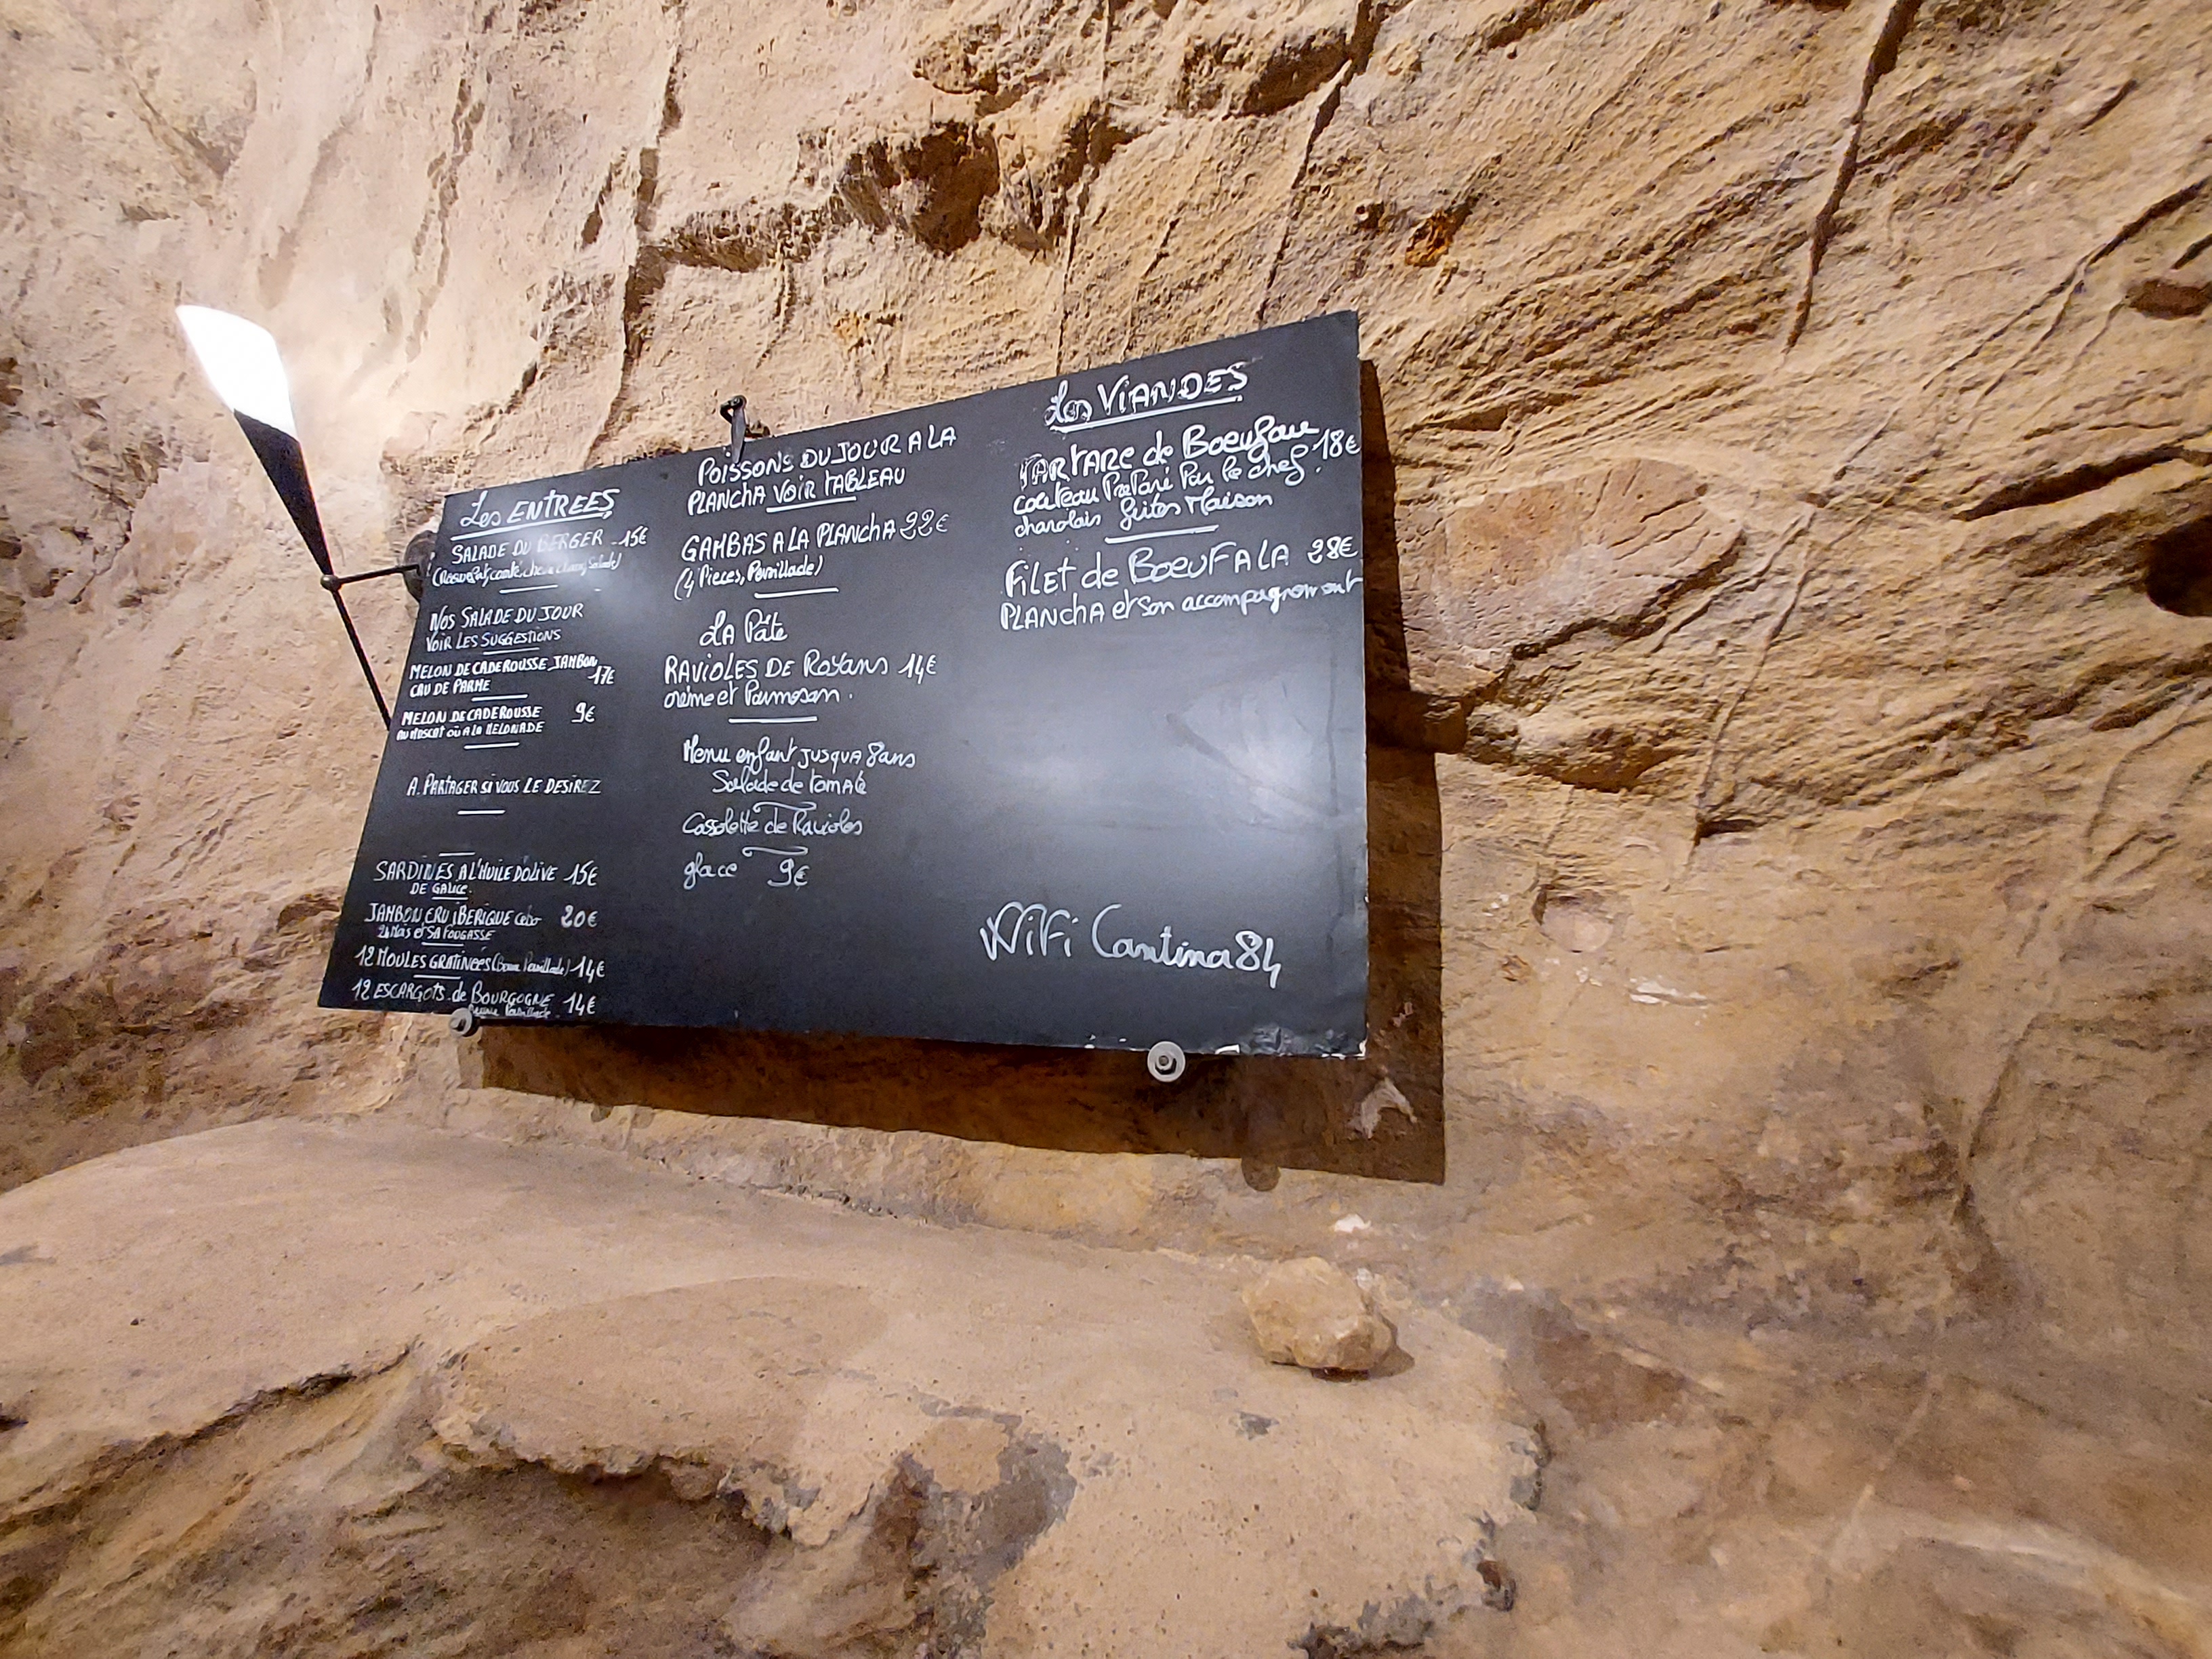 Les ENTREES
SALADE DU BERGER 15€
NOS SALADE DU JOUR
VOIR LES SUGGESTIONS
MELON DE CADEROUSSE JAMBON
CRU DE PARME 17€
MELON DE CADEROUSSE 9€
AU MUSCAT OÙ A LA MELONADE
A PARTAGER SI VOUS LE DESIREZ
SARDINES A L'HUILE D'OLIVE 15€
DE GALICE.
JAMBON CRU IBERIQUE Cebo 20€
24 Mois et SA FOUGASSE
12 MOULES GRATINEES 14€
12 ESCARGOTS de BOURGOGNE 14€
POISSONS DU JOUR A LA
PLANCHA VOIR TABLEAU
GAMBAS A LA PLANCHA 22€
(4 Pieces, Persillade)
LA Pâte
RAVIOLES DE ROYANS 14€
crème et Parmesan.
Menu enfant JUSQUA 8ans
Salade de tomate
Cassolette de Ravioles
glace 9€
Les VIANDES
TARTARE de Boeuf au 18€
couteau Préparé Par le chef.
charolais frites Maison
FILET de BOEUF A LA 28€
PLANCHA et son accompagnement
WiFi Cantina84